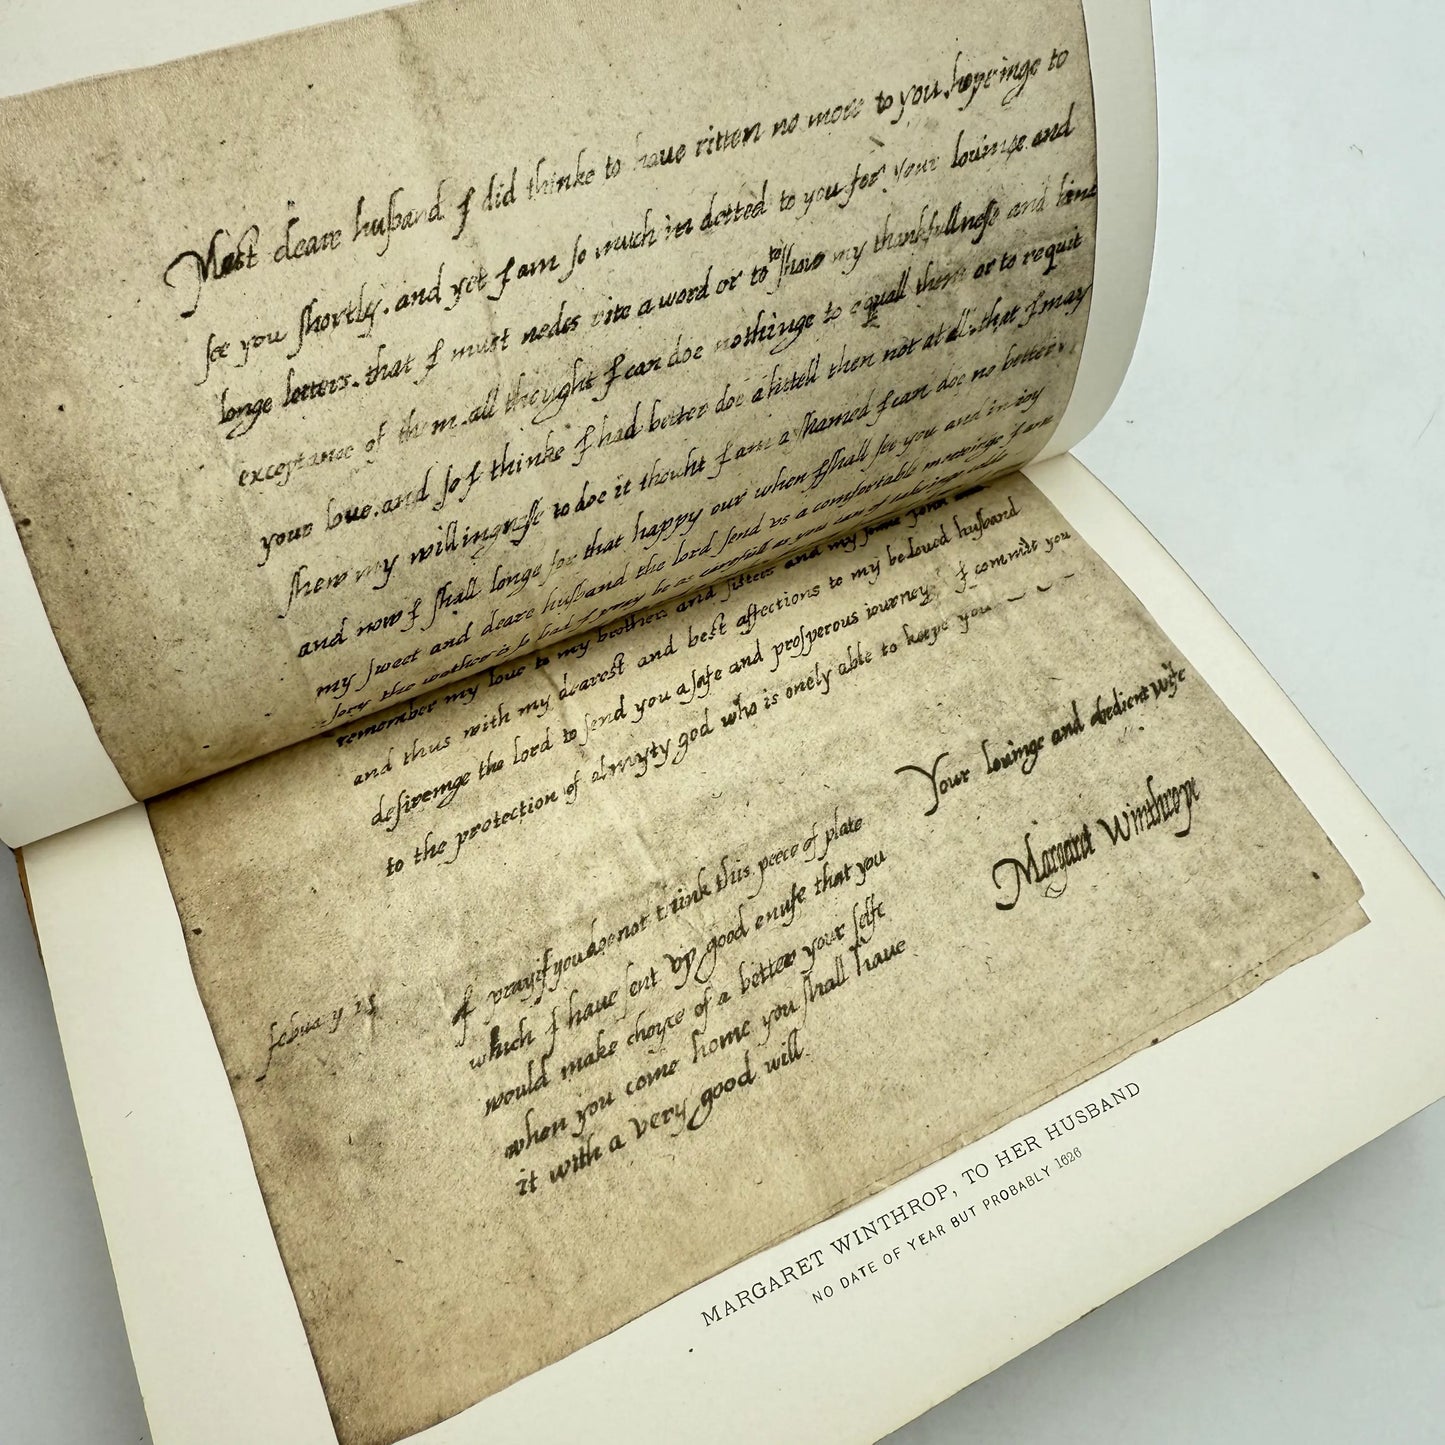 Most deare husband I did thinke to haue ritten no more to you hopeinge to
see you shortly. and yet I am so much in detted to you for your louinge and
longe letters. that I must nedes rite a word or to to show my thankfullnesse and kind
exceptance of them. all thought I can doe nothinge to equall them or to requit
your loue. and so I thinke I had better doe a littell then not at all. that I may
shew my willingnesse to doe it thought I am a shamed I can doe no better
and now I shall longe for that happy our when I shall see you and inioy
my sweet and deare husband the lord send vs a comfortable meetinge I am
sory the wether is so bad I pray be as carefull as you can of takeinge could
remember my loue to my brothers and sisters and my sonne John
and thus with my dearest and best affections to my beloued husband
desireinge the lord to send you a safe and prosperous iourney I commit you
to the protection of almyty god who is onely able to keepe you
Your louinge and obedient wife
Margaret Winthrope
I pray if you doe not think this peece of plate
which I haue sent vp good enuse that you
would make choyce of a better your selfe
when you come home you shall haue
it with a very good will
febua y 15
MARGARET WINTHROP, TO HER HUSBAND
NO DATE OF YEAR BUT PROBABLY 1626